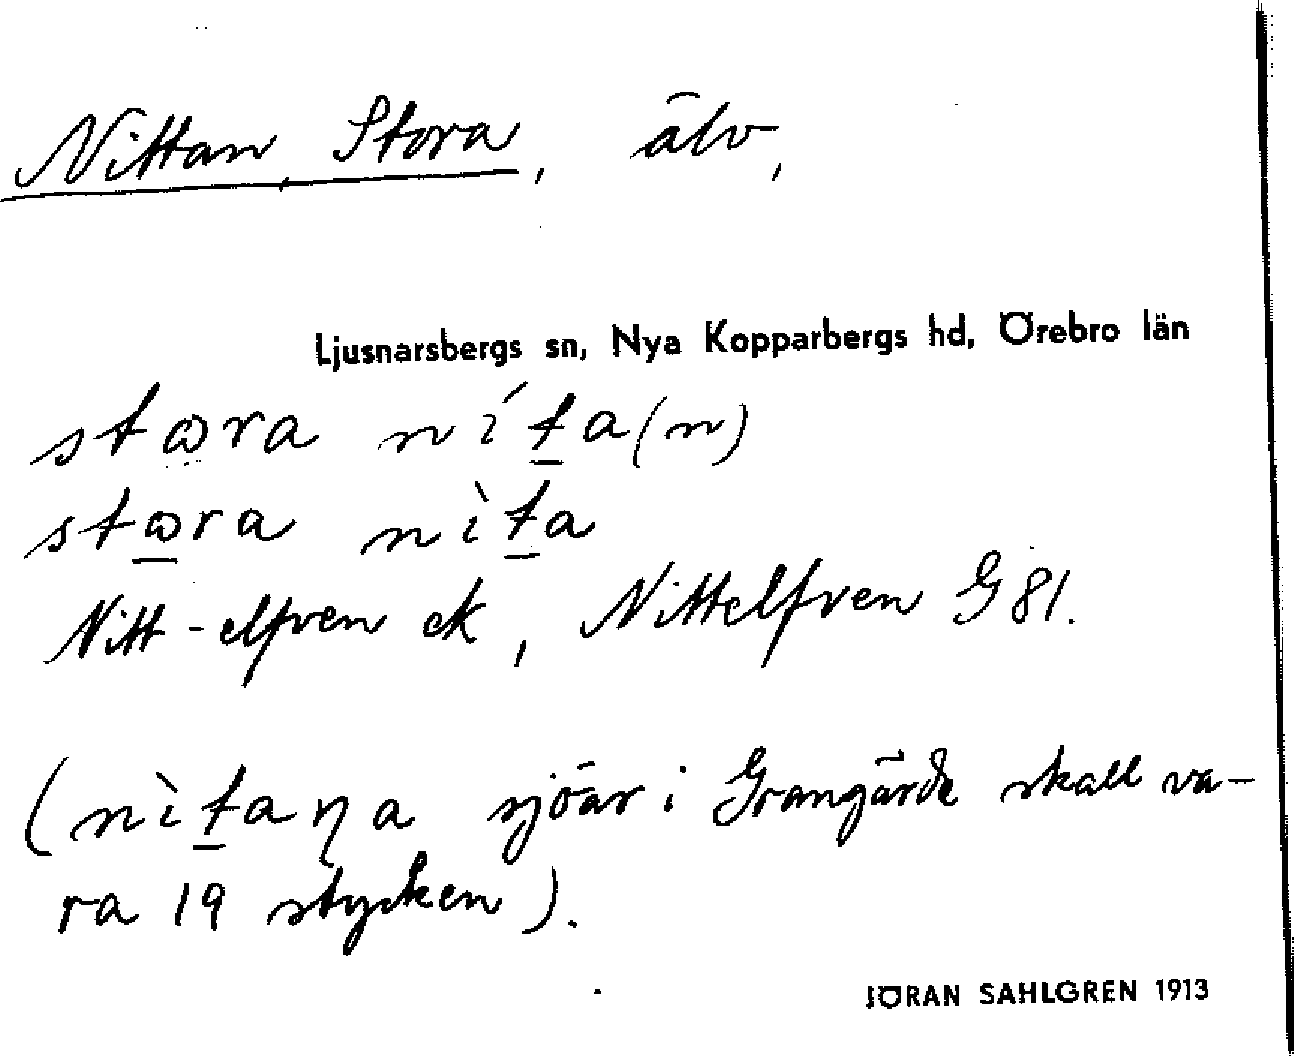 Nittan, Stora, älv,
Ljusnarsbergs sn, Nya Kopparbergs hd, Örebro län
stɷra ní̵ta(n)
stɷra nìta
Nitt-elfven ek, Nittelfven G 81.
(nìtaɳa sjöar i Grangärde skall va-
ra 19 stycken).
JÖRAN SAHLGREN 1913